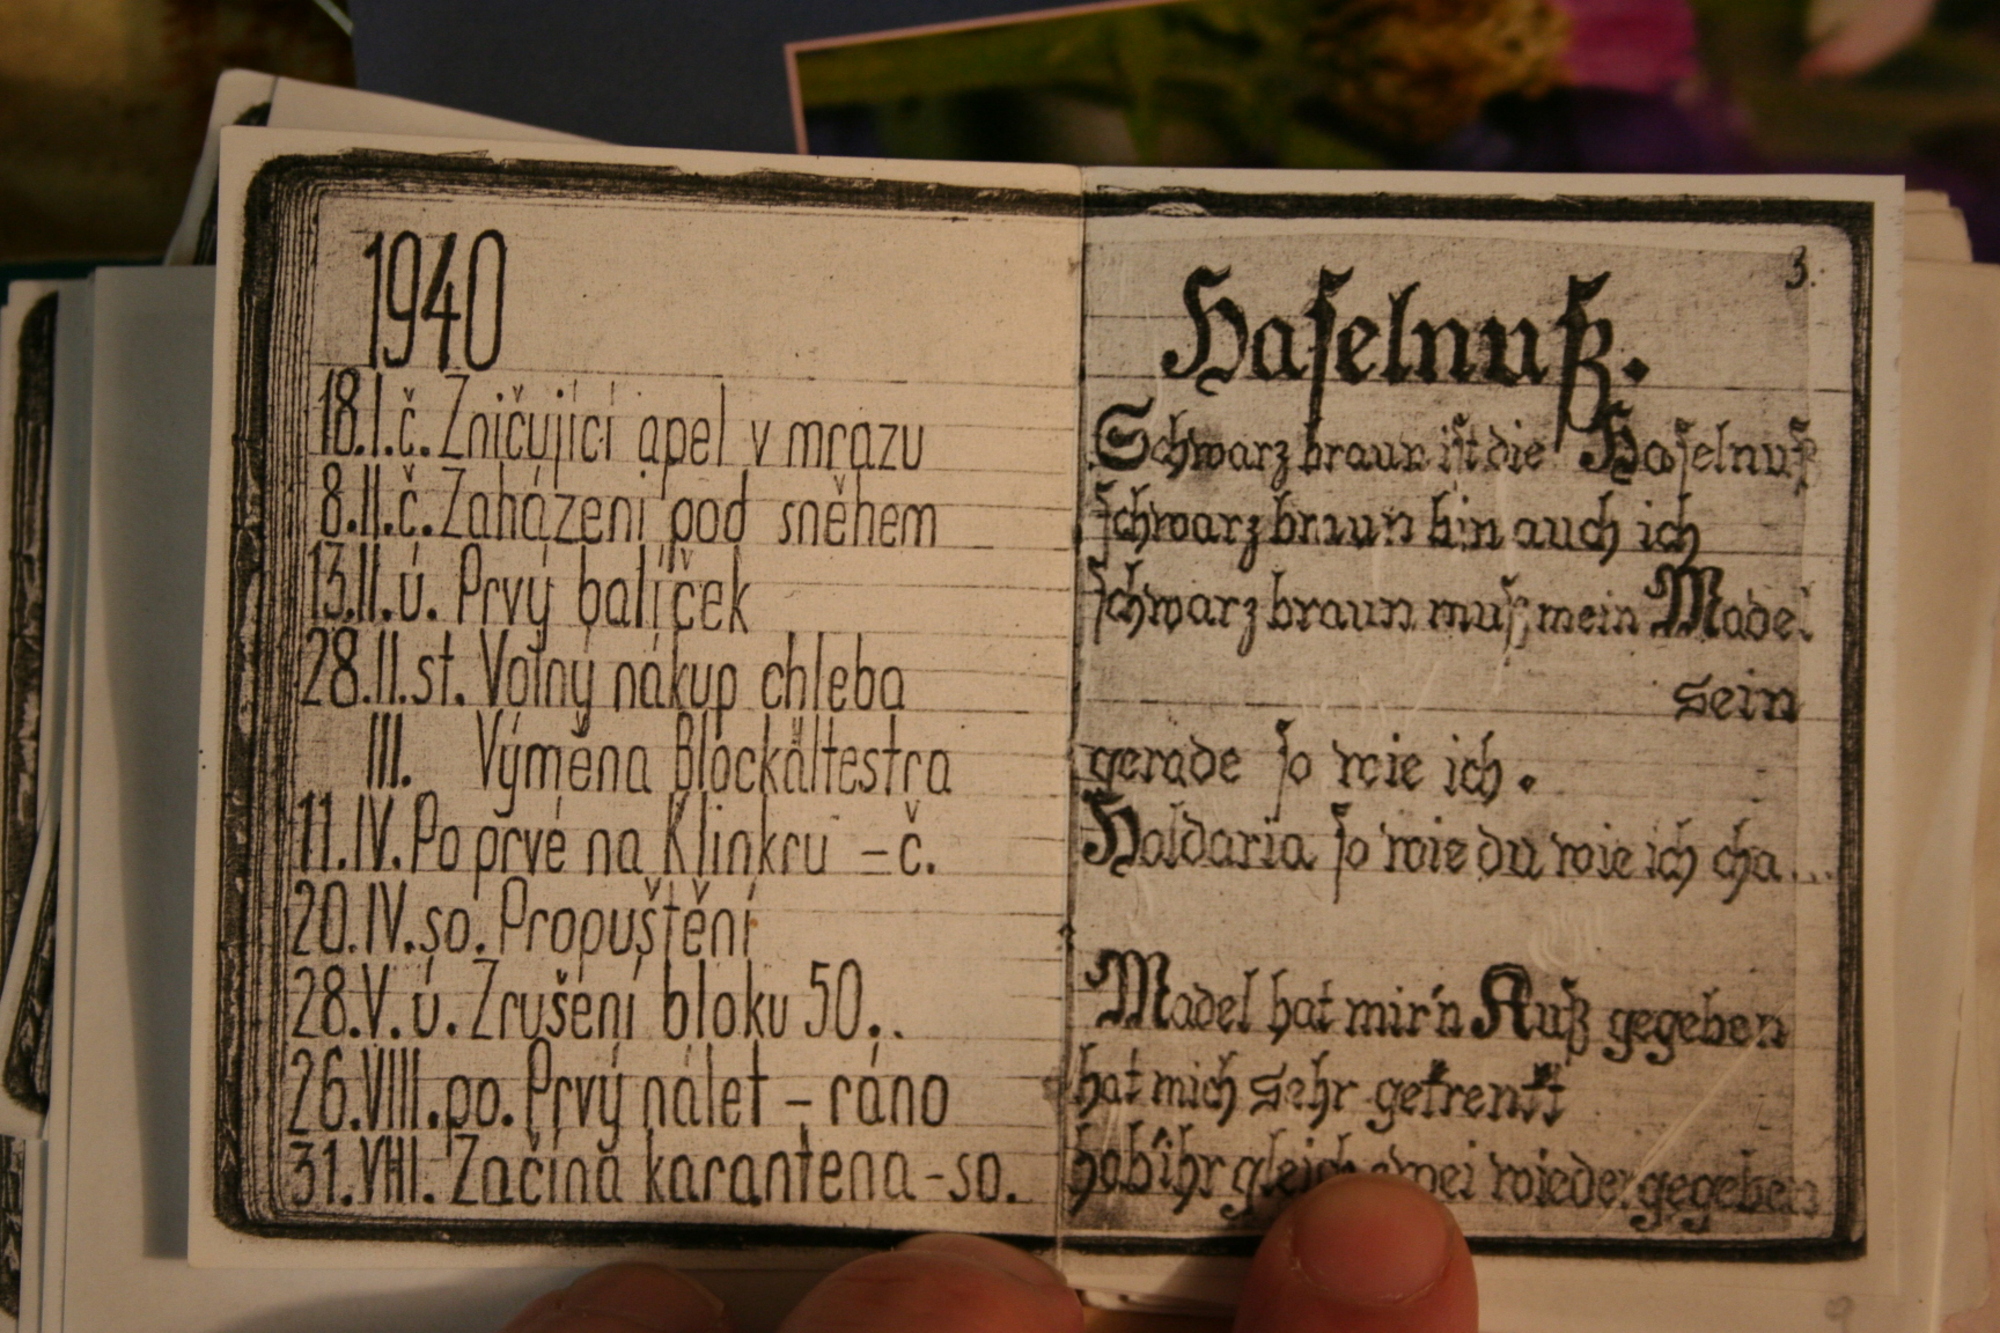 1940
18.I.č. Zničující apel v mrazu
8.II.č. Zaházeni pod sněhem
13.II.ú. Prvý balíček
28.II.st. Volný nákup chleba
III. Výměna Blockältestra
11.IV. Po prvé na Klinkru – č.
20.IV. so. Propuštění
28.V.ú. Zrušení bloku 50..
26.VIII. po. Prvý nálet – ráno
31.VIII. Začíná karanténa - so.
3.
Haselnuß.
Schwarzbraun ist die Haselnuß
schwarzbraun bin auch ich
schwarzbraun muß mein Madel
sein
gerade so wie ich.
Holdaria so wie du wie ich cha...
Madel hat mir'n Kuß gegeben
hat mich sehr
hab' ihr gleich wieder gegeben